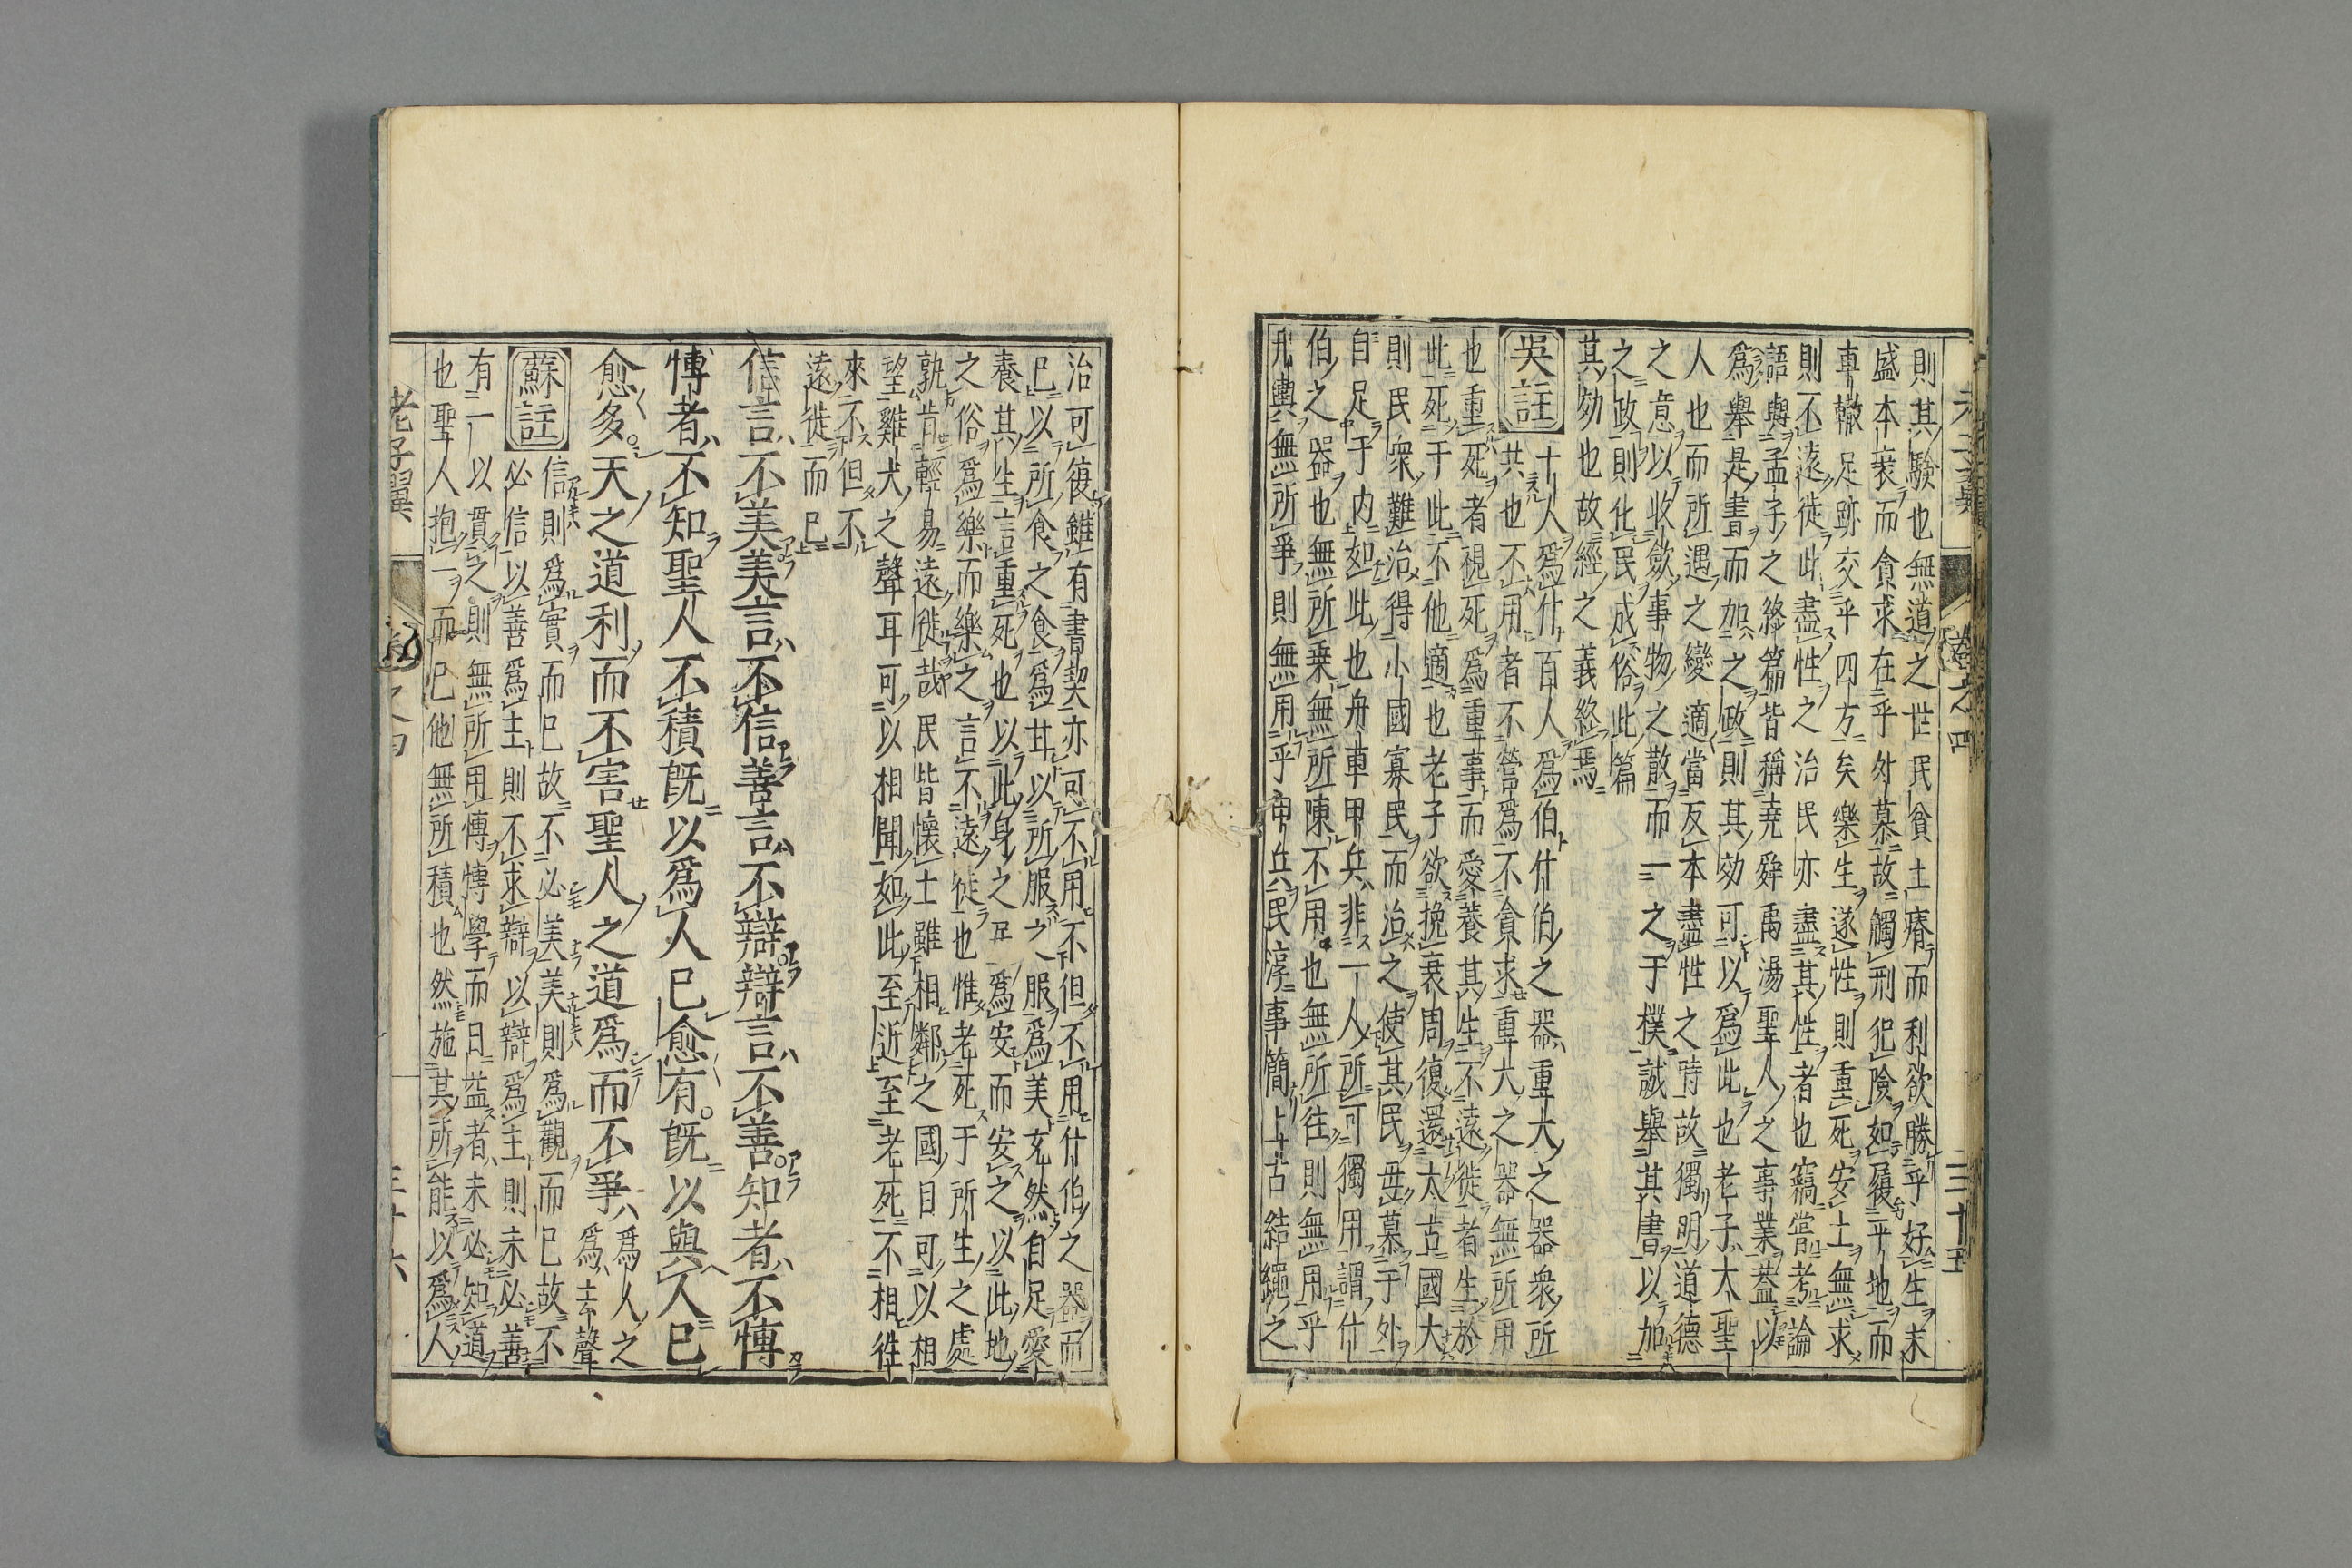 則其驗也無道之世民貧土瘠而利欲勝乎好生末
盛本衰而貪求在乎外慕故觸刑犯險如履平地而
車轍足跡交乎四方矣樂生遂性則重死安土無求
則不遠徙此盡性之治民亦盡其性者也竊嘗考論
語與孟子之終篇皆稱堯舜禹湯聖人之事業蓋以
爲舉是書而加之政則其効可以爲此也老子大聖
人也而所遇之變適當反本盡性之時故獨明道德
之意以收斂事物之散而一之于樸誠舉其書以加
之政則化民成俗此篇
其効也故經之義終焉
吳註
十人爲什百人爲伯什伯之器重大之器衆所
共也不用者不營爲不貪求重大之器無所用
也重死者視死爲重事而愛養其生不遠徙者生於
此死于此不他適也老子欲挽衰周復還太古國大
則民衆難治得小國寡民而治之使其民毋慕于外
自足于内如此也舟車甲兵非一人所可獨用謂什
伯之器也無所乘無所陳不用也無所往則無用乎
舟輿無所爭則無用乎甲兵民淳事簡上古結繩之
治可復雖有書契亦可不用不但不用什伯之器而
已以所食之食爲甘以所服之服爲美充然自足愛
養其生言重死也以此身之  爲安而安之以此地
之俗爲樂而樂之言不遠徙也惟老死于所生之處
孰肯輕易遠徙哉民皆懷土雖相鄰之國目可以相
望雞犬之聲耳可以相聞如此至近至老死不相往
來不但不
遠徙而已
信言不美美言不信善言不辯辯言不善知者不慱
慱者不知聖人不積既以爲人已愈有既以與人已
愈多天之道利而不害聖人之道爲而不爭爲人之
爲去聲
蘇註
信則爲實而已故不必美美則爲觀而已故不
必信以善爲主則不求辯以辯爲主則未必善
有一以貫之則無所用慱慱學而日益者未必知道
也聖人抱一而已他無所積也然施其所能以爲人
老子翼
卷之四
三十五